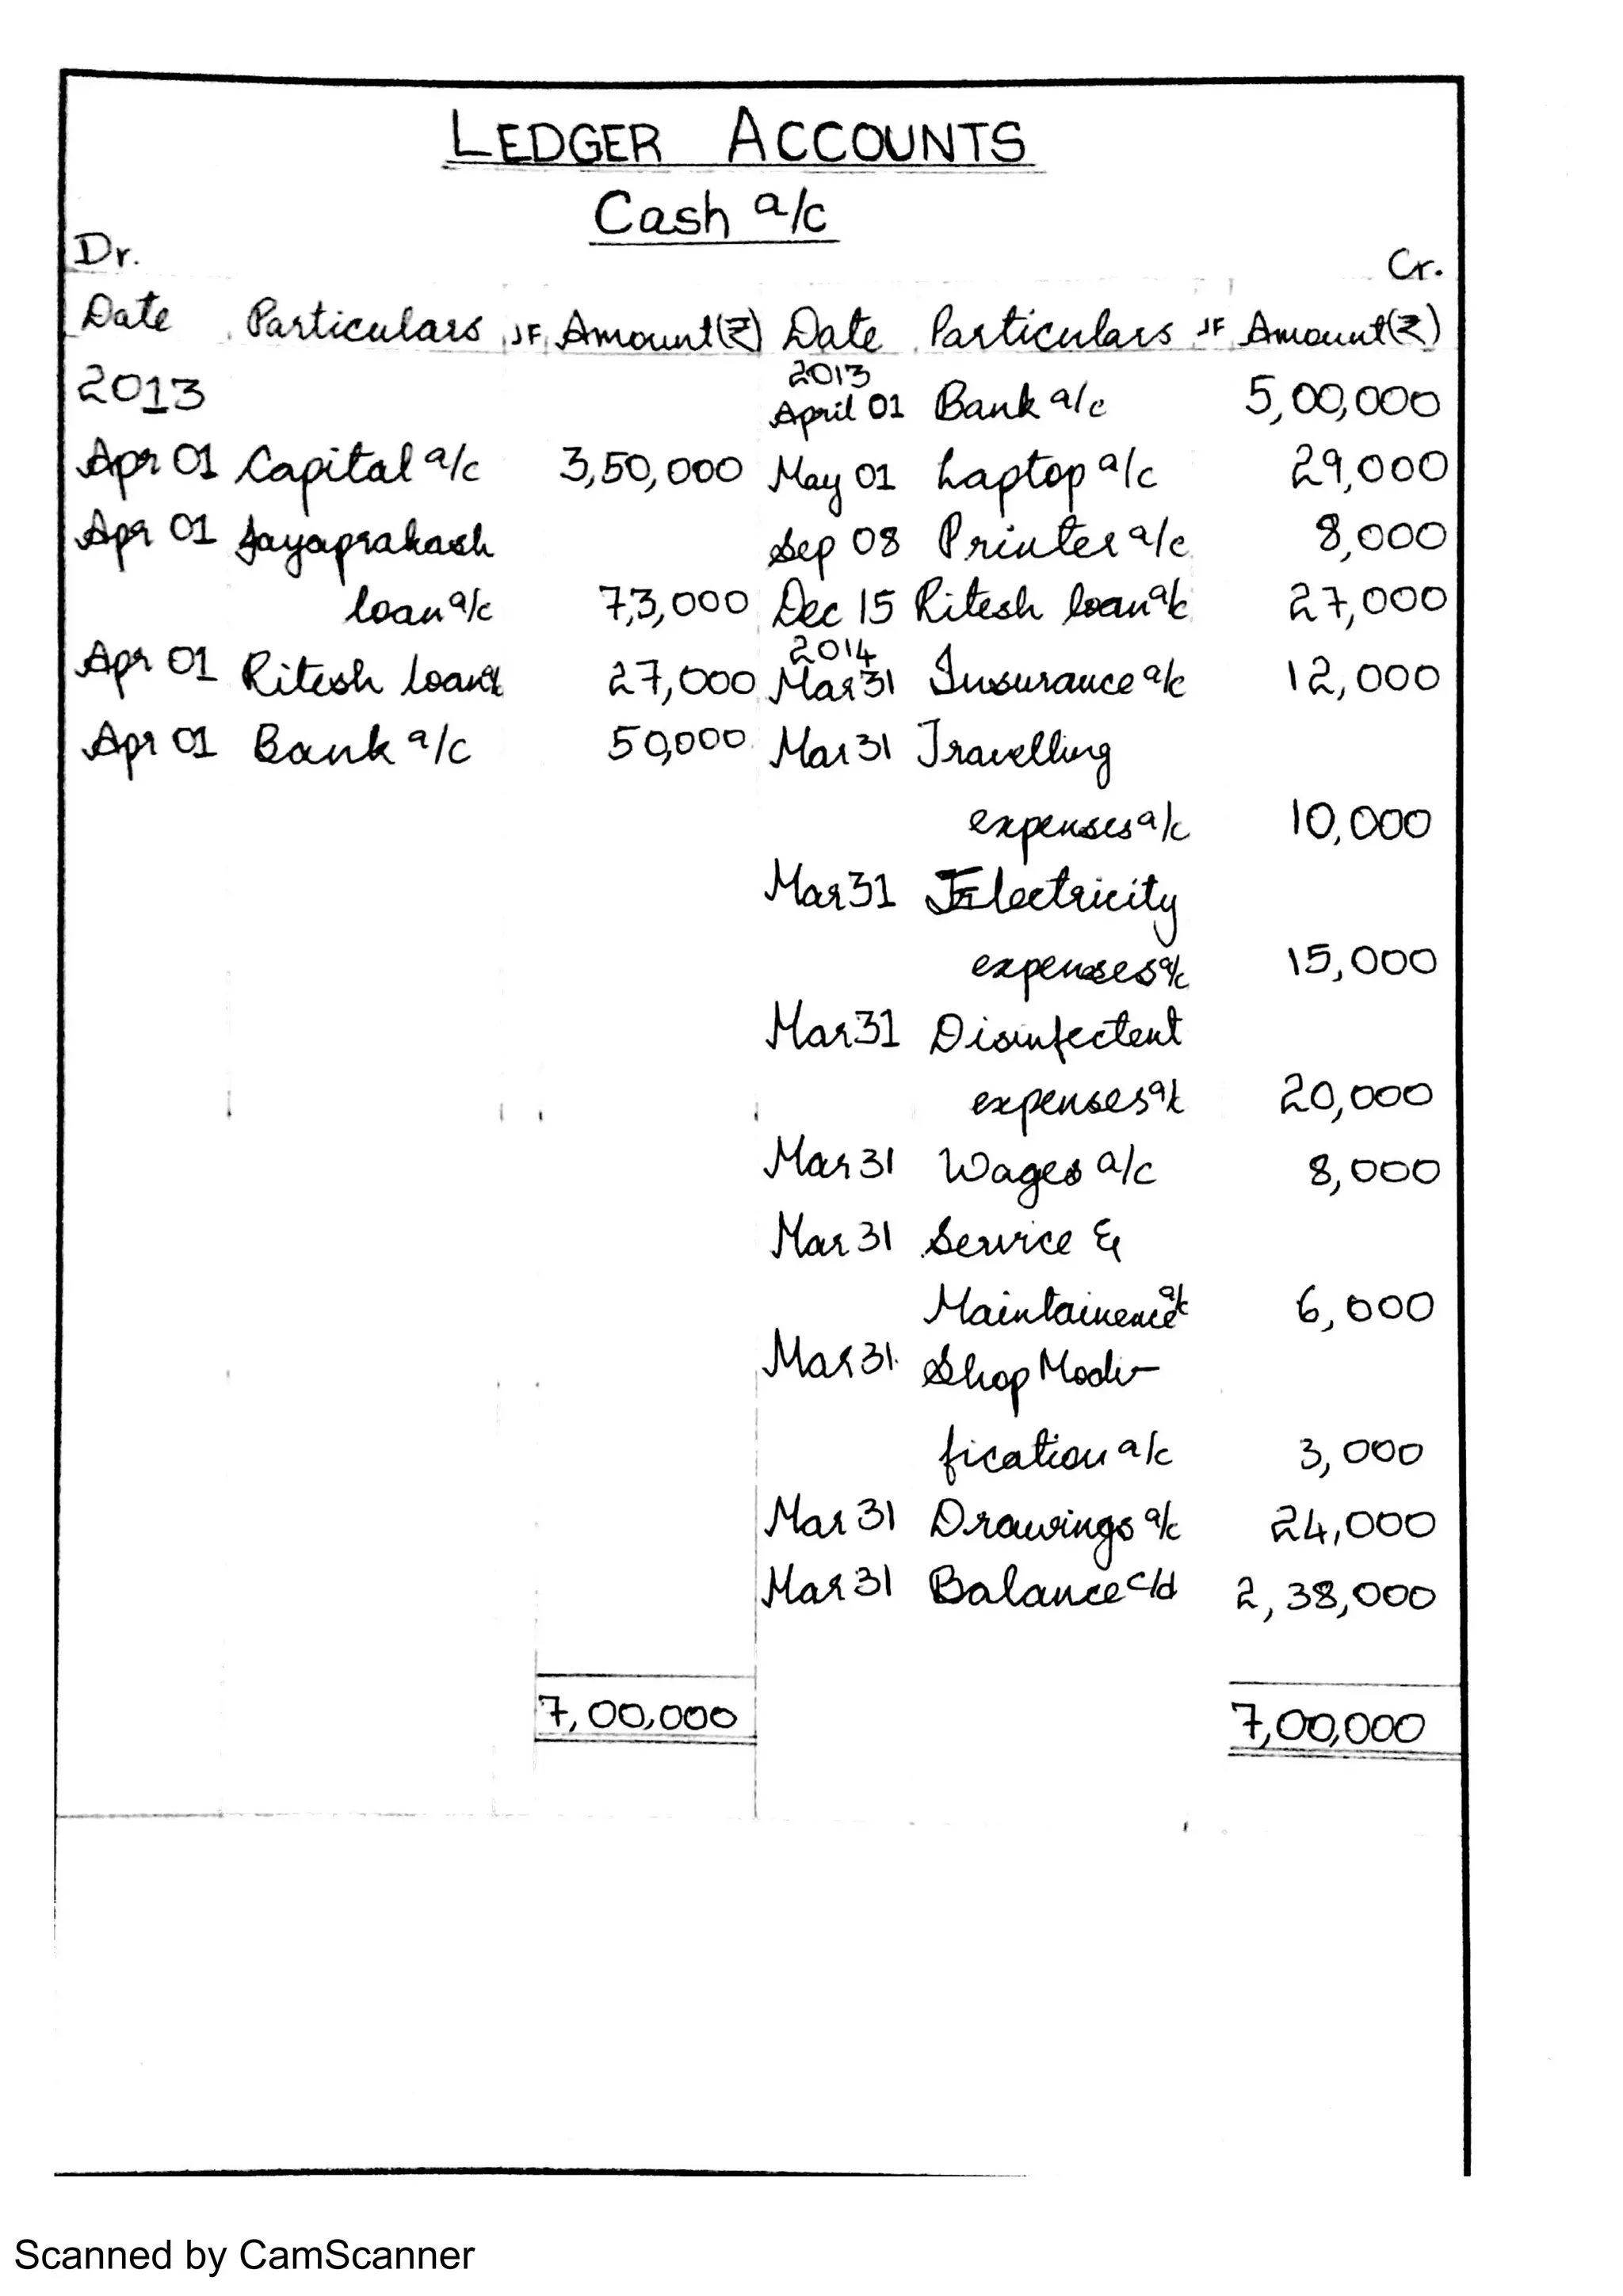 LEDGER ACCOUNTS
Cash a/c
Dr. Cr.
Date Particulars JF Amount(₹) Date Particulars JF Amount(₹)
2013 2013
April 01 Bank a/c 5,00,000
Apr 01 Capital a/c 3,50,000 May 01 Laptop a/c 29,000
Apr 01 Jayaprakash Sep 08 Printer a/c 8,000
loan a/c 73,000 Dec 15 Ritesh loan a/c 27,000
2014
Apr 01 Ritesh loan a/c 27,000 Mar 31 Insurance a/c 12,000
Apr 01 Bank a/c 50,000 Mar 31 Travelling
expenses a/c 10,000
Mar 31 Electricity
expenses a/c 15,000
Mar 31 Disinfectent
expenses a/c 20,000
Mar 31 Wages a/c 8,000
Mar 31 Service &
Maintainence a/c 6,000
Mar 31 Shop Modi-
fication a/c 3,000
Mar 31 Drawings a/c 24,000
Mar 31 Balance c/d 2,38,000
7,00,000 7,00,000
Scanned by CamScanner